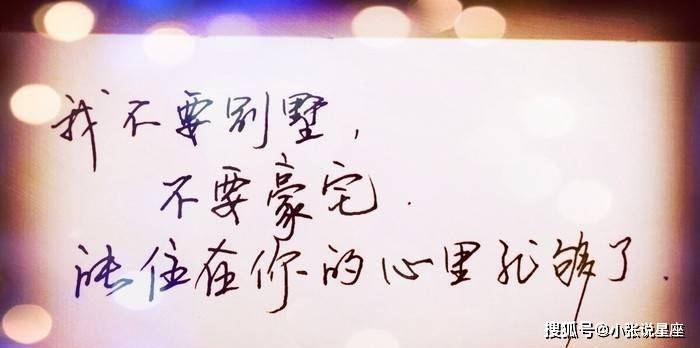 我不要别墅，
不要豪宅.
能住在你的心里就够了.
搜狐号@小张说星座